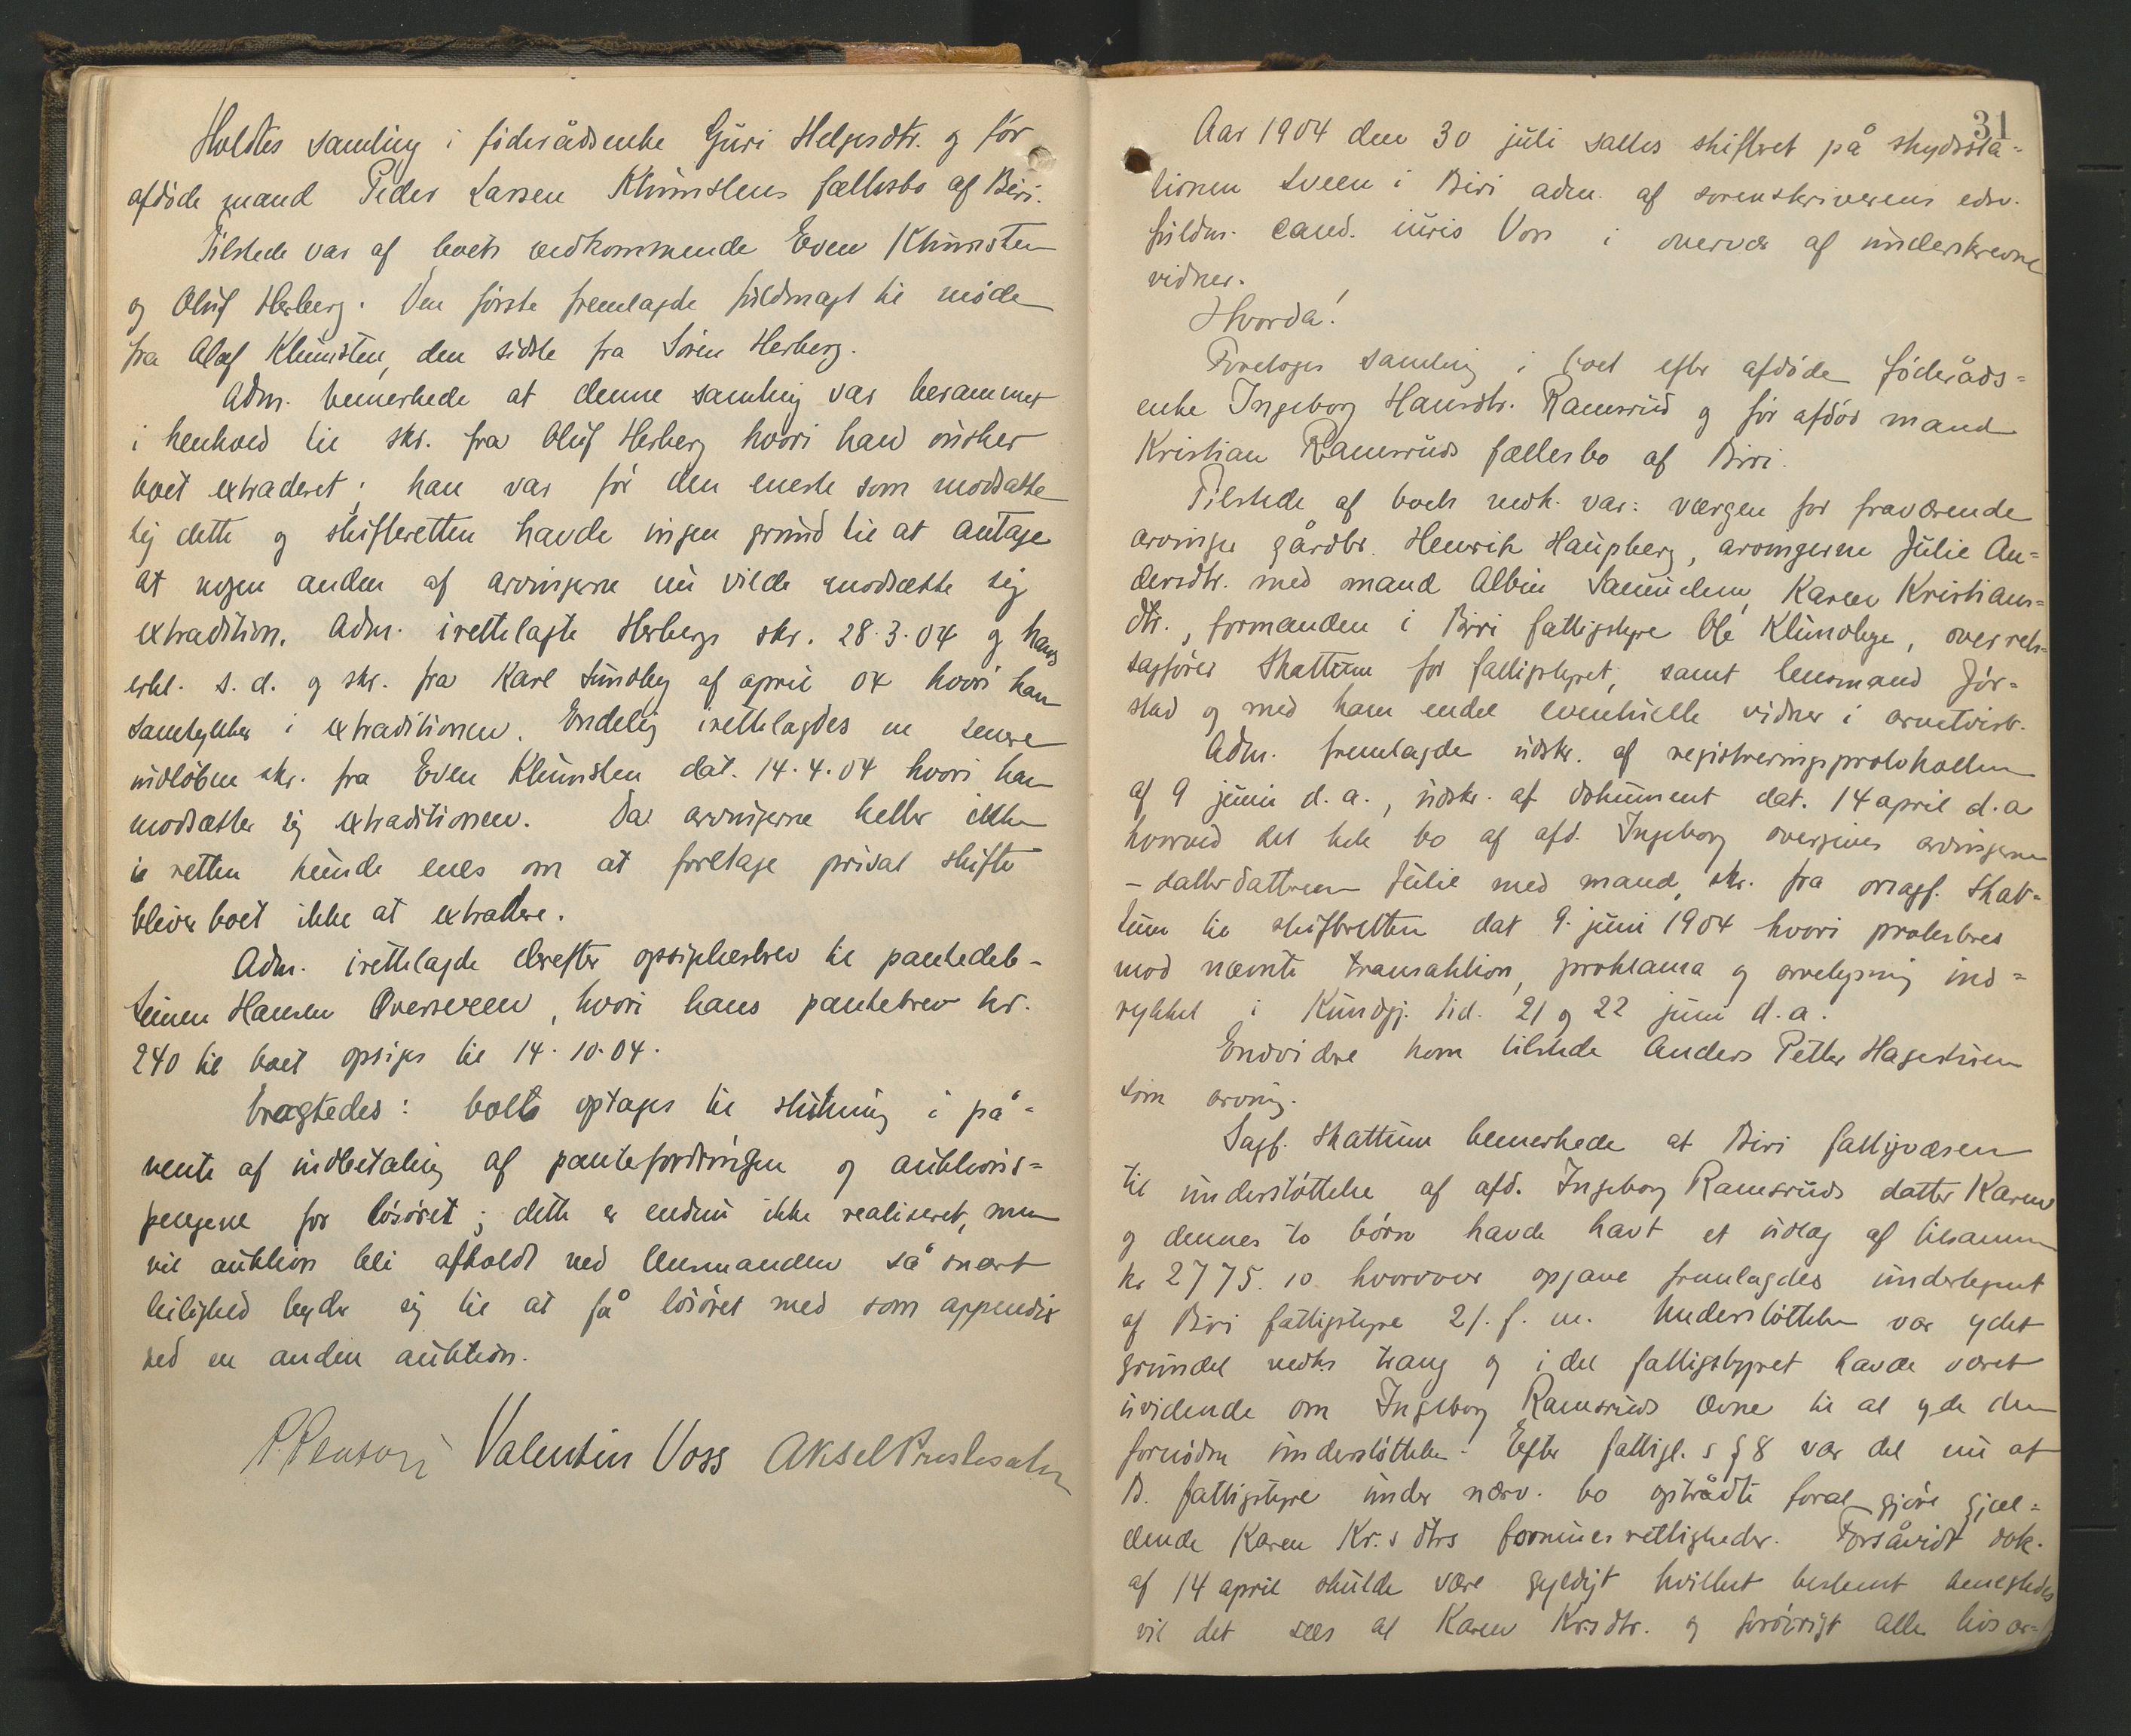 Holdtes samling i føderådsenke Guri Helgesdtr. og før
afdøde mand Peder Larsen Klunstens fællesbo af Biri.
Tilstede var af boets vedkommende Even Klunsten
og Oluf Herberg. Den første fremlagde fuldmagt til møde
fra Olaf Klunsten, den sidste fra Sørin Herberg.
Adm. bemerkede at denne samling var berammet
i henhold til skr. fra Oluf Herberg hvori han ønsker
boet extraderet; han var før den eneste som modsatte
sig dette og skifteretten havde ingen grund til at antage
at nogen anden af arvingerne nu vilde modsætte sig
extradition. Adm. irettelagte Herbergs skr. 28.3.04 og hans
erkl. s.d. og skr. fra Karl Sundby af april 04 hvori han
samtykker i extraditionen. Endelig irettelagdes en senere
indløben skr. fra Even Klunsten dat. 14.4.04 hvori han
modsætter sig extraditionen. Da arvingerne heller ikke
i retten kunde enes om at foretage privat skifte
bliver boet ikke at extradere.
Adm. irettelagde derefter opsigelsesbrev til pantedeb-
Hansen Oversveen, hvori hans pantebrev kr.
240 til boet opsiges til 14.10.04.
bragtedes: boets optages til slutning i på-
vente af indbetaling af pantefordringen og auktions-
pengene for løsøret; dette er endnu ikke realiseret, men
vil auktion bli afholdt ved lensmanden så snart
leilighed byder sig til at få løsøret med som appendix
ved en anden auktion.
Valentin Voss Aksel Prestesater
31
Aar 1904 den 30 juli sattes skifteret på skydssta-
tionen Sveen i Biri adm. af sorenskriverens edsv.
fuldm. cand. iuris Voss i overvær af underskrevne
vidner.
Hvorda!
Foretoges samling i boet efter afdøde føderåds-
enke Ingeborg Hansdtr. Ramsrud og før afdød mand
Kristian Ramsruds fællesbo af Biri.
Tilstede af boets vedk. var: værgen for fraværende
arvinger gårdbr. Henrik Haugsberg, arvingerne Julie An-
dersdtr. med mand Albin Samuelsen, Karen Kristians-
dtr., formanden i Biri fattigstyre Ole Klundbye, overrets-
sagfører Skattum for fattigstyret, samt lensmand Jør-
stad og med ham endel eventuelle vidner i arvetvist.
Adm. fremlagde udskr. af registreringsprotokollen
af 9 juni d.a., udskr. af dokument dat. 14 april d.a
hvorved det hele bo af afd. Ingeborg overgives arvingerne
- datterdatteren Julie med mand, skr. fra orsagf. Skat-
tum til skifteretten dat 9. juni 1904 hvori protesteres
mod nævnte transaktion, proklama og arvelysning ind-
rykket i Kundgj. tid. 21 og 22 juni d.a.
Endvidere kom tilstede Anders Petter Hagestuen
som arving.
Sagf. Skattum bemerkede at Biri fattigvæsen
til understøttelse af afd. Ingeborg Ramsruds datter Karen
og dennes to børn havde havt et udlæg af tilsammen
kr 2775.10 hvorover opgave fremlagdes undertegnet
af Biri fattigstyre 21. f. m. Understøttelsen var ydet
grundet vedks trang og idet fattigstyret havde været
uvidende om Ingeborg Ramsruds ævne til at yde den
fornødne understøttelse. Efter fattigl.s § 8 var det nu at
B. fattigstyre under nærv. bo optrådte for at gjøre gjæl-
dende Karen Kr.s dtrs formues rettigheder. Forsåvidt dok.
af 14 april skulde være gyldigt hvilket bestemt benegtedes
vil det sees at Karen Krsdtr. og forøvrigt alle livsar-